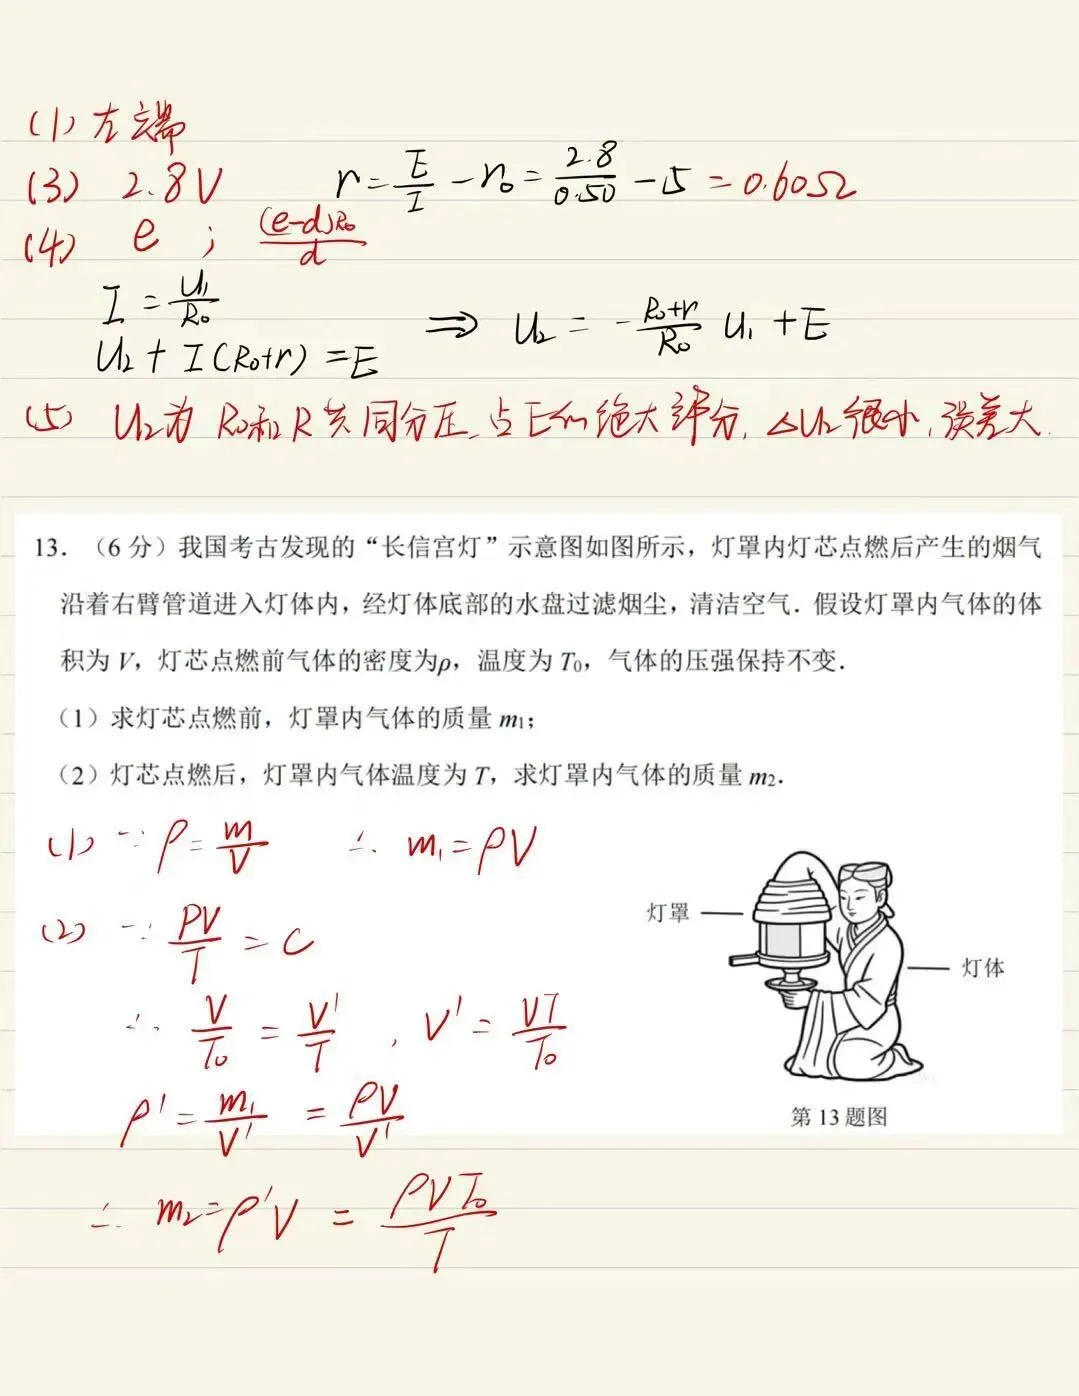 (1) 左端
(3) 2.8V r=E/I-r₀=2.8/0.50-5=0.60Ω
(4) e ; (e-d)R₀/d
I=U₁/R₀
U₂+I(R₀+r)=E ⇒ U₂=-(R₀+r)/R₀ U₁+E
(5) U₂为R₀和R共同分压,占E的绝大部分,△U₂很小,误差大.
13. （6 分）我国考古发现的“长信宫灯”示意图如图所示，灯罩内灯芯点燃后产生的烟气
沿着右臂管道进入灯体内，经灯体底部的水盘过滤烟尘，清洁空气．假设灯罩内气体的体
积为 V，灯芯点燃前气体的密度为ρ，温度为 T₀，气体的压强保持不变．
（1）求灯芯点燃前，灯罩内气体的质量 m₁；
（2）灯芯点燃后，灯罩内气体温度为 T，求灯罩内气体的质量 m₂．
(1) ∵ ρ=m/V ∴ m₁=ρV
(2) ∵ PV/T=C
∴ V/T₀=V'/T , V'=VT/T₀
ρ'=m₁/V'=ρV/V'
∴ m₂=ρ'V=ρVT₀/T
灯罩
灯体
第 13 题图